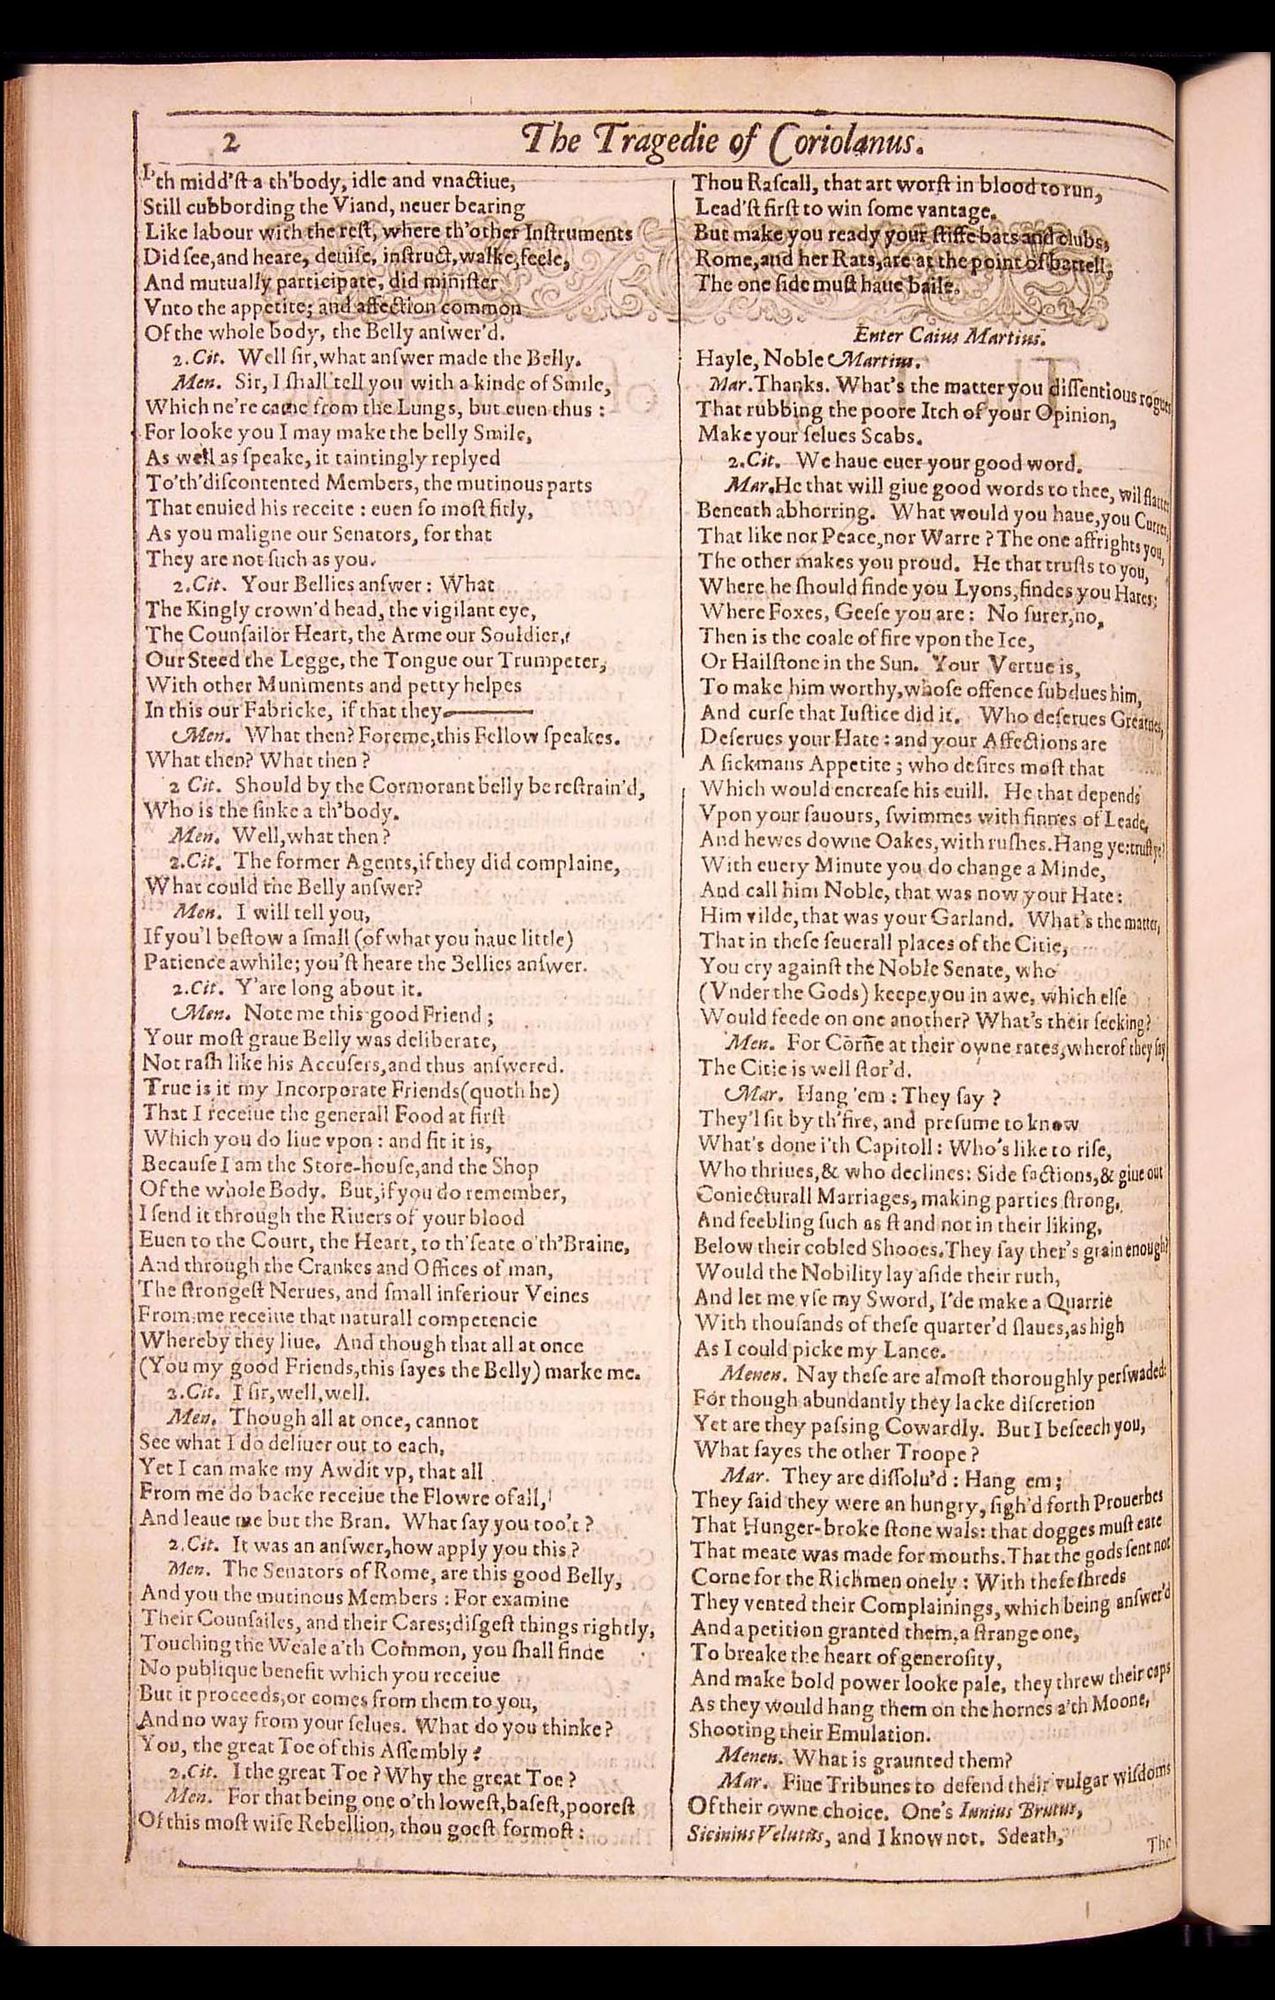 2 The Tragedie of Coriolanus.
I'th midd'ſt a th'body, idle and vnactiue,
Still cubbording the Viand, neuer bearing
Like labour with the reſt, where th'other Inſtruments
Did ſee,and heare, deuiſe, inſtruct,walke,feele,
And mutually participate, did miniſter
Vnto the appetite; and affection common
Of the whole body, the Belly anſwer'd.
2.Cit. Well ſir,what anſwer made the Belly.
Men. Sir, I ſhall tell you with a kinde of Smile,
Which ne're came from the Lungs, but euen thus :
For looke you I may make the belly Smile,
As well as ſpeake, it taintingly replyed
To'th'diſcontented Members, the mutinous parts
That enuied his receite : euen ſo moſt fitly,
As you maligne our Senators, for that
They are not ſuch as you.
2.Cit. Your Bellies anſwer : What
The Kingly crown'd head, the vigilant eye,
The Counſailor Heart, the Arme our Souldier,
Our Steed the Legge, the Tongue our Trumpeter,
With other Muniments and petty helpes
In this our Fabricke, if that they———
Men. What then? Foreme,this Fellow ſpeakes.
What then? What then ?
2 Cit. Should by the Cormorant belly be reſtrain'd,
Who is the ſinke a th'body.
Men. Well,what then ?
2.Cit. The former Agents,if they did complaine,
What could the Belly anſwer?
Men. I will tell you,
If you'l beſtow a ſmall (of what you haue little)
Patience awhile; you'ſt heare the Bellies anſwer.
2.Cit. Y'are long about it.
Men. Note me this good Friend ;
Your moſt graue Belly was deliberate,
Not raſh like his Accuſers,and thus anſwered.
True is it my Incorporate Friends(quoth he)
That I receiue the generall Food at firſt
Which you do liue vpon : and fit it is,
Becauſe I am the Store-houſe,and the Shop
Of the whole Body. But,if you do remember,
I ſend it through the Riuers of your blood
Euen to the Court, the Heart, to th'ſeate o'th'Braine,
And through the Crankes and Offices of man,
The ſtrongeſt Nerues, and ſmall inferiour Veines
From me receiue that naturall competencie
Whereby they liue. And though that all at once
(You my good Friends,this ſayes the Belly) marke me.
2.Cit. I ſir,well,well.
Men. Though all at once, cannot
See what I do deliuer out to each,
Yet I can make my Awdit vp, that all
From me do backe receiue the Flowre of all,
And leaue me but the Bran. What ſay you too't ?
2.Cit. It was an anſwer,how apply you this ?
Men. The Senators of Rome, are this good Belly,
And you the mutinous Members : For examine
Their Counſailes, and their Cares;diſgeſt things rightly,
Touching the Weale a'th Common, you ſhall finde
No publique benefit which you receiue
But it proceeds,or comes from them to you,
And no way from your ſelues. What do you thinke ?
You, the great Toe of this Aſſembly ?
2.Cit. I the great Toe ? Why the great Toe ?
Men. For that being one o'th loweſt,baſeſt,pooreſt
Of this moſt wiſe Rebellion, thou goeſt formoſt :
Thou Raſcall, that art worſt in blood to run,
Lead'ſt firſt to win ſome vantage.
But make you ready your ſtiffe bats and clubs,
Rome,and her Rats,are at the point of battell,
The one ſide muſt haue baile.
Enter Caius Martius.
Hayle, Noble Martius.
Mar.Thanks. What's the matter you diſſentious rogues
That rubbing the poore Itch of your Opinion,
Make your ſelues Scabs.
2.Cit. We haue euer your good word.
Mar.He that will giue good words to thee, wil flatter
Beneath abhorring. What would you haue,you Curres,
That like nor Peace,nor Warre ? The one affrights you,
The other makes you proud. He that truſts to you,
Where he ſhould finde you Lyons,findes you Hares:
Where Foxes, Geeſe you are : No ſurer,no,
Then is the coale of fire vpon the Ice,
Or Hailſtone in the Sun. Your Vertue is,
To make him worthy,whoſe offence ſubdues him,
And curſe that Iuſtice did it. Who deſerues Greatnes,
Deſerues your Hate : and your Affections are
A ſickmans Appetite ; who deſires moſt that
Which would encreaſe his euill. He that depends
Vpon your fauours, ſwimmes with finnes of Leade,
And hewes downe Oakes,with ruſhes.Hang ye:truſt ye?
With euery Minute you do change a Minde,
And call him Noble, that was now your Hate :
Him vilde, that was your Garland. What's the matter,
That in theſe ſeuerall places of the Citie,
You cry againſt the Noble Senate, who
(Vnder the Gods) keepe you in awe, which elſe
Would feede on one another? What's their ſeeking?
Men. For Corne at their owne rates,wherof they ſay
The Citie is well ſtor'd.
Mar. Hang 'em : They ſay ?
They'l ſit by th'fire, and preſume to know
What's done i'th Capitoll : Who's like to riſe,
Who thriues,& who declines: Side factions,& giue out
Coniecturall Marriages, making parties ſtrong,
And feebling ſuch as ſtand not in their liking,
Below their cobled Shooes.They ſay ther's grain enough?
Would the Nobility lay aſide their ruth,
And let me vſe my Sword, I'de make a Quarrie
With thouſands of theſe quarter'd ſlaues,as high
As I could picke my Lance.
Menen. Nay theſe are almoſt thoroughly perſwaded:
For though abundantly they lacke diſcretion
Yet are they paſsing Cowardly. But I beſeech you,
What ſayes the other Troope ?
Mar. They are diſſolu'd : Hang em ;
They ſaid they were an hungry, ſigh'd forth Prouerbes
That Hunger-broke ſtone wals: that dogges muſt eate
That meate was made for mouths.That the gods ſent not
Corne for the Richmen onely : With theſe ſhreds
They vented their Complainings, which being anſwer'd
And a petition granted them,a ſtrange one,
To breake the heart of generoſity,
And make bold power looke pale, they threw their caps
As they would hang them on the hornes a'th Moone,
Shooting their Emulation.
Menen. What is graunted them?
Mar. Fiue Tribunes to defend their vulgar wiſdoms
Of their owne choice. One's Iunius Brutus,
Sicinius Velutus, and I know not. Sdeath,
The